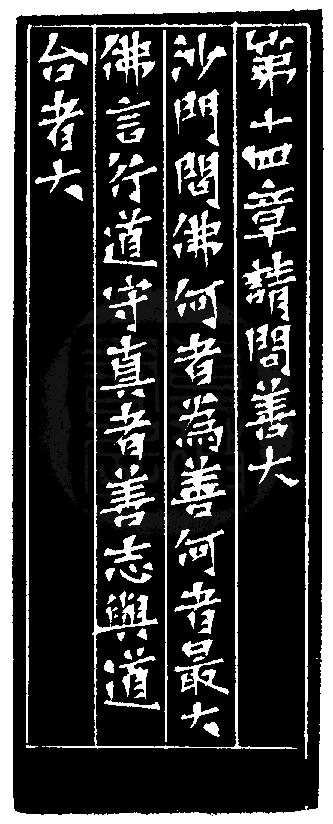 第十四章請問善大
沙門問佛何者為善何者最大
佛言行道守真者善志與道
合者大